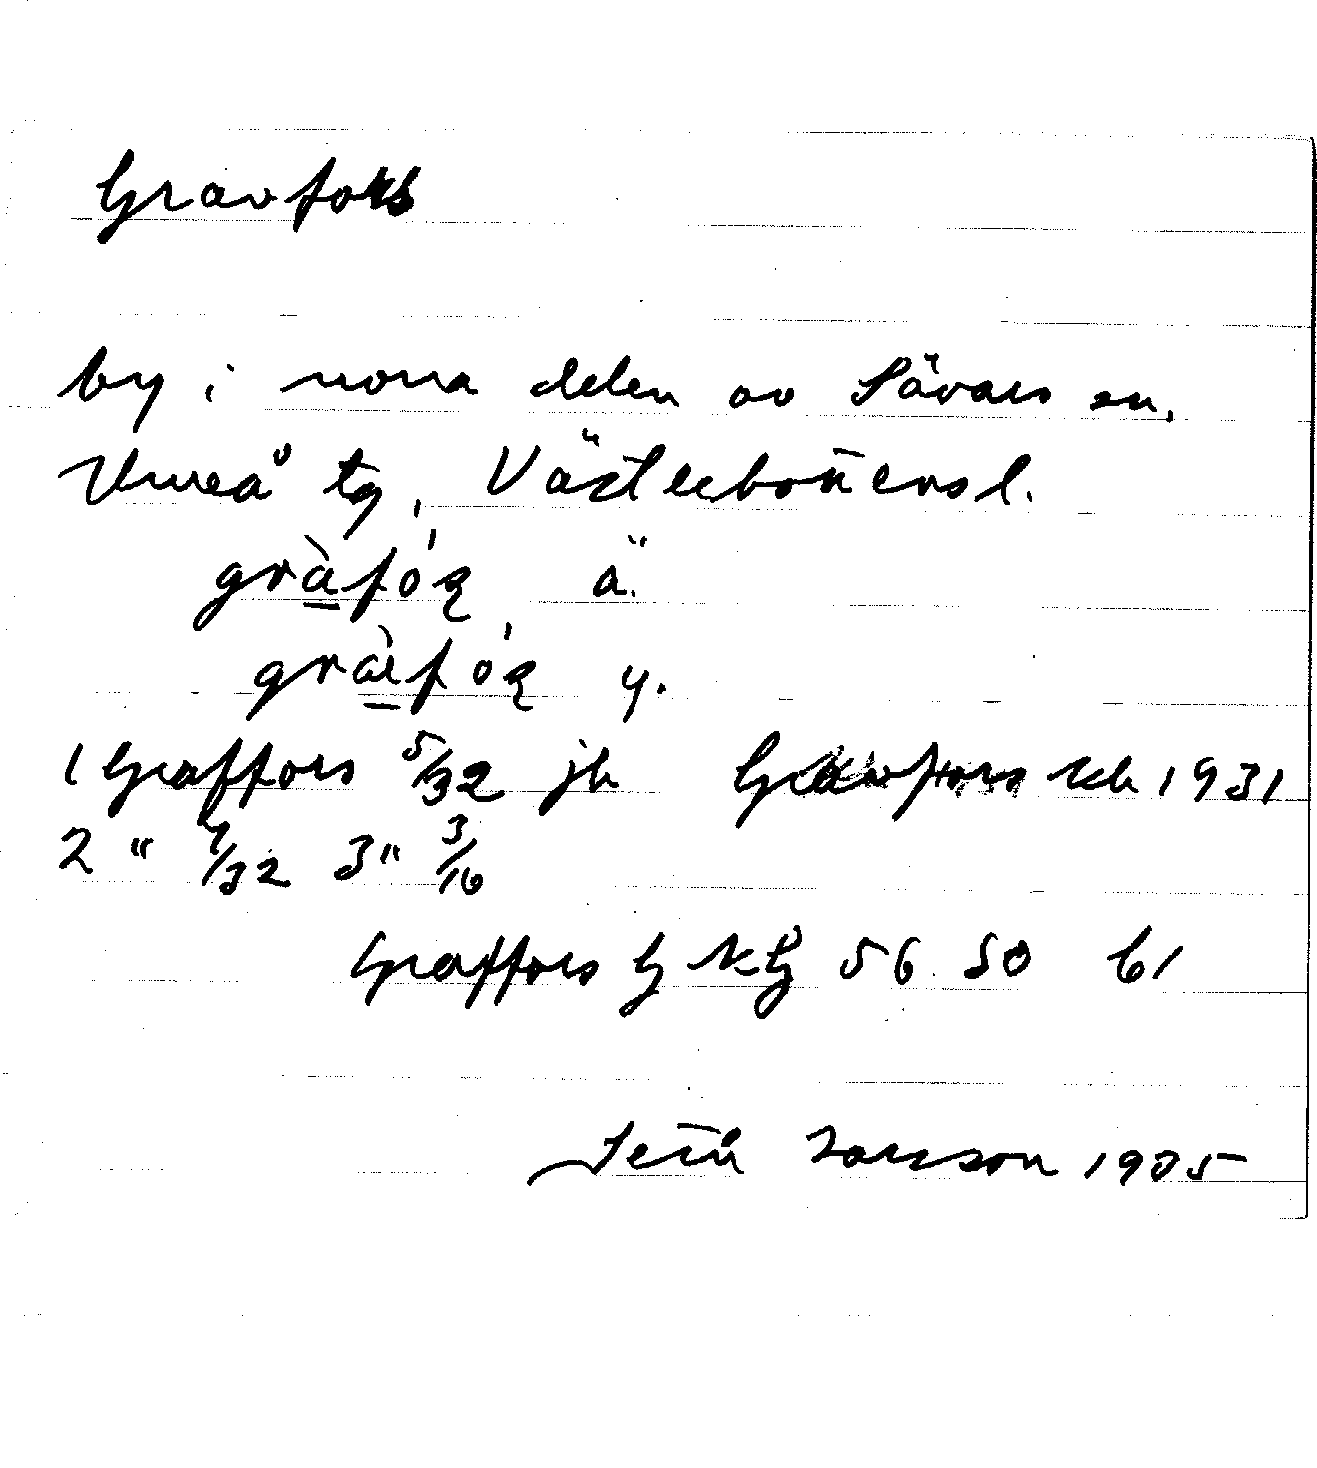 Gravfors
by i norra delen av Sävars sn,
Umeå tg, Västerbottens l.
gràfǫ́ʂ ä.
gràfǫ́ʂ y.
1 Graffors 5/32 jb Gravfors rkb 1931
2 " 4/32 3 " 3/16
Graffors G kg 56 50 61
Seth Larsson 1935